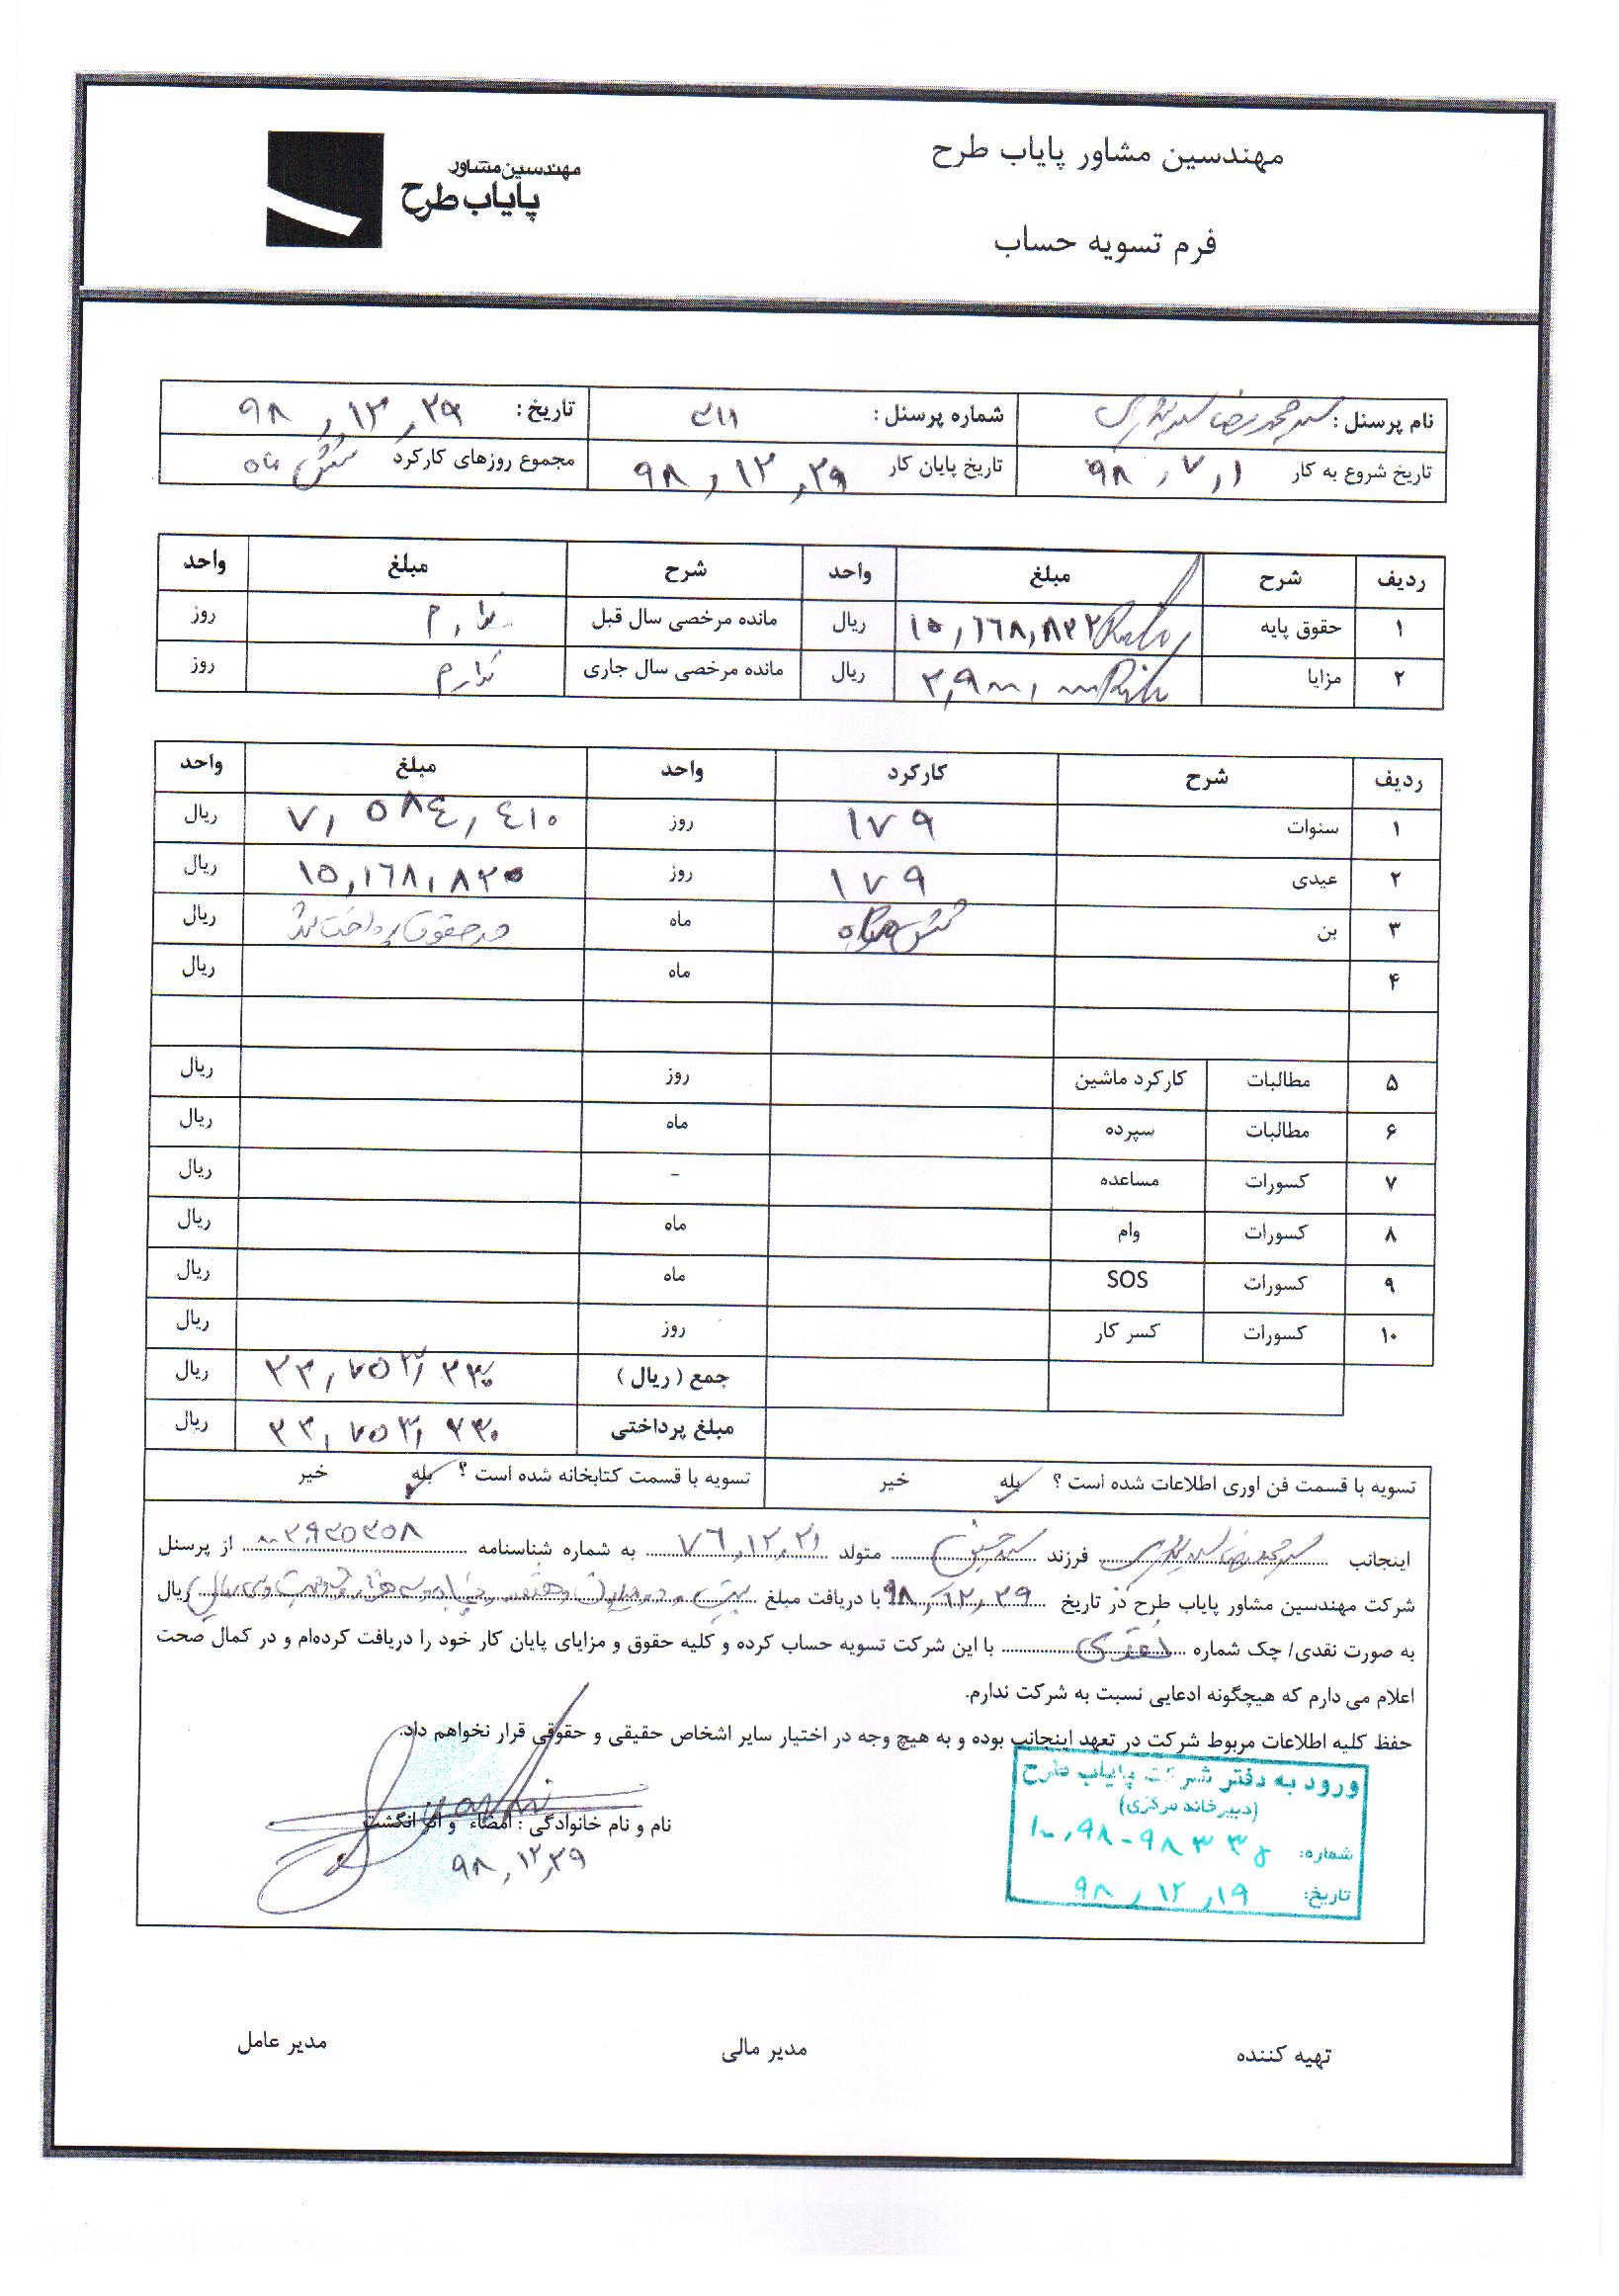 مهندسین مشاور پایاب طرح
مهندسین مشاور
پایاب طرح
فرم تسویه حساب
نام پرسنل : شماره پرسنل : تاریخ : ۹۸,۱۲,۲۹
تاریخ شروع به کار ۹۸,۷,۱ تاریخ پایان کار ۹۸,۱۲,۲۹ مجموع روزهای کارکرد شش ماه
ردیف شرح مبلغ واحد شرح مبلغ واحد
۱ حقوق پایه ریال مانده مرخصی سال قبل ندارم روز
۲ مزایا ریال مانده مرخصی سال جاری ندارم روز
ردیف شرح کارکرد واحد مبلغ واحد
۱ سنوات ۱۷۹ روز ۷,۵۸٤,٤۱۰ ریال
۲ عیدی ۱۷۹ روز ۱۵,۱٦۸,۸۲۰ ریال
۳ بن ماه در حقوق پرداخت شد ریال
۴ ماه ریال
۵ مطالبات کارکرد ماشین روز ریال
۶ مطالبات سپرده ماه ریال
۷ کسورات مساعده - ریال
۸ کسورات وام ماه ریال
۹ کسورات SOS ماه ریال
۱۰ کسورات کسر کار روز ریال
جمع ( ریال ) ۲۲,۷۵۳,۲۳۰ ریال
مبلغ پرداختی ۲۲,۷۵۳,۲۳۰ ریال
تسویه با قسمت فن اوری اطلاعات شده است ؟ بله خیر تسویه با قسمت کتابخانه شده است ؟ بله خیر
اینجانب فرزند متولد به شماره شناسنامه از پرسنل
شرکت مهندسین مشاور پایاب طرح در تاریخ ۹۸,۱۲,۲۹ با دریافت مبلغ ریال
به صورت نقدی/ چک شماره نقدی با این شرکت تسویه حساب کرده و کلیه حقوق و مزایای پایان کار خود را دریافت کرده‌ام و در کمال صحت
اعلام می دارم که هیچگونه ادعایی نسبت به شرکت ندارم.
حفظ کلیه اطلاعات مربوط شرکت در تعهد اینجانب بوده و به هیچ وجه در اختیار سایر اشخاص حقیقی و حقوقی قرار نخواهم داد.
ورود به دفتر شرکت پایاب طرح
(دبیرخانه مرکزی)
نام و نام خانوادگی : امضاء و اثر انگشت
شماره:
۹۸,۱۲,۲۹
تاریخ: ۹۸,۱۲,۱۹
تهیه کننده مدیر مالی مدیر عامل